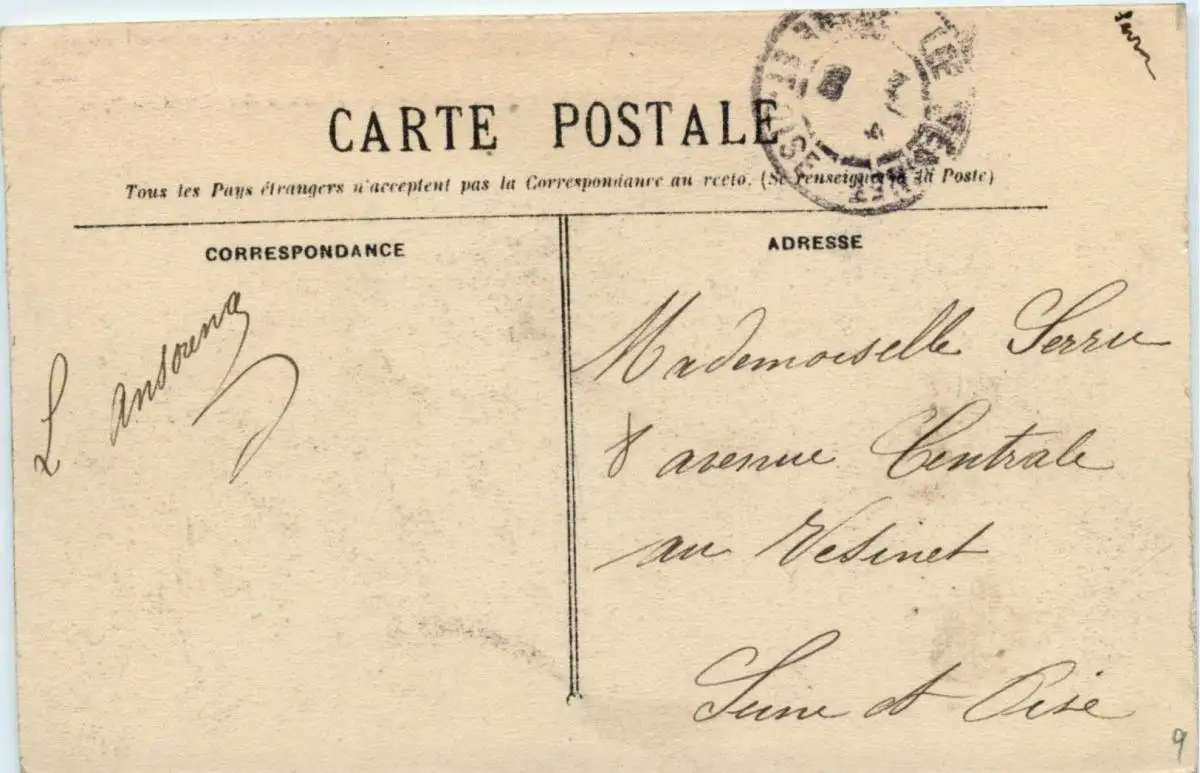 CARTE POSTALE
Tous les Pays étrangers n'acceptent pas la Correspondance au recto. (Se renseigner à la Poste)
CORRESPONDANCE
L Ansourena
ADRESSE
Mademoiselle Serru
8 avenue Centrale
au Vesinet
Seine et Oise
LE VESINET
ET-OISE
9